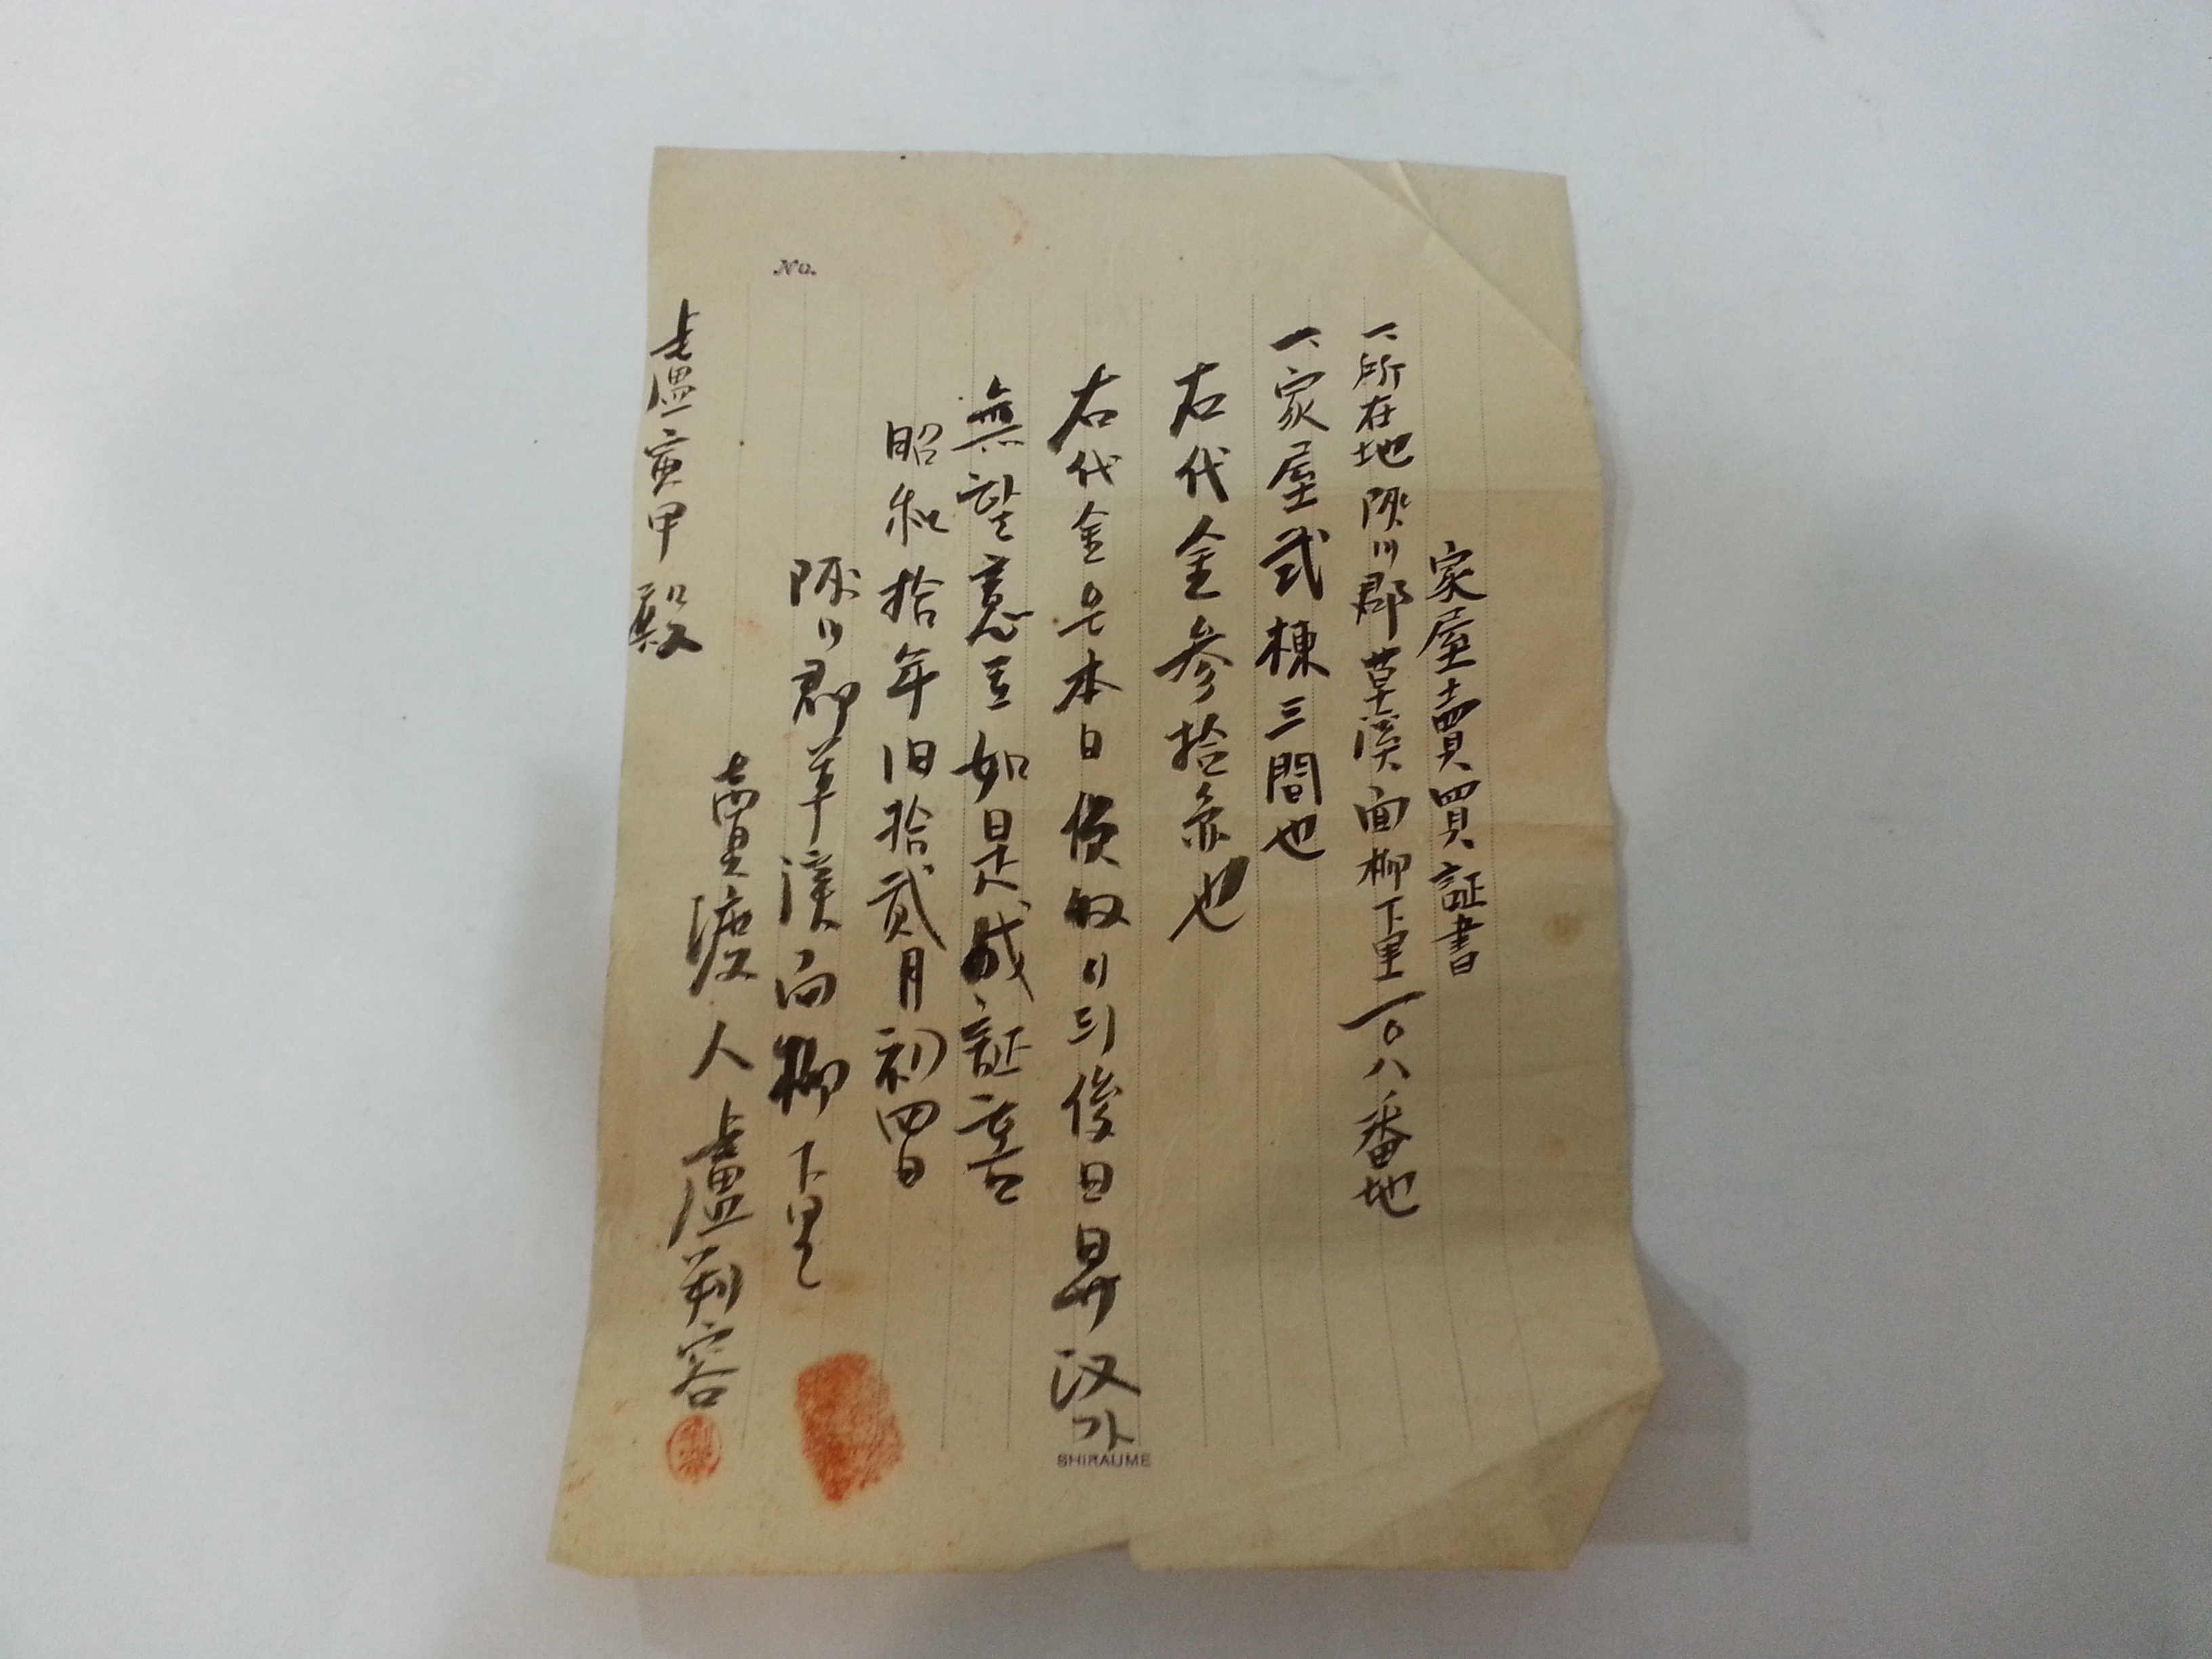 No.
家屋賣買証書
一、所在地 陜川郡草溪面柳下里一〇八番地
一、家屋弐棟三間也
右代金参拾 也
右代金은本日 収 히後日毋
無 意豆如是成証書
昭和拾年旧拾貳月初四日
陜川郡草溪面柳下里
賣渡人 盧 容
盧寅甲 殿
SHIRAUME